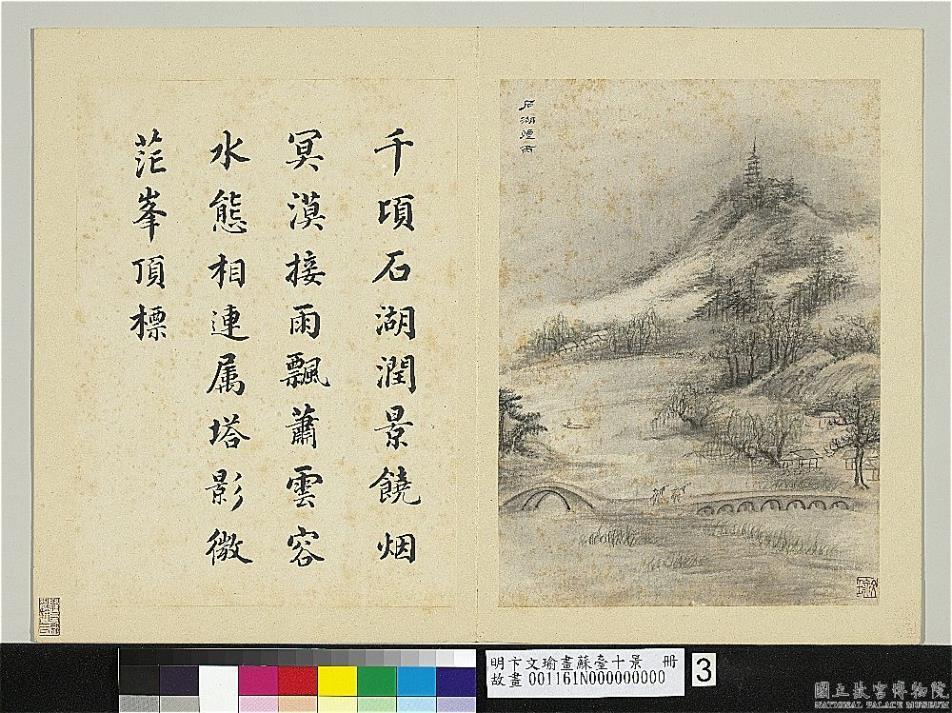 石湖煙雨
千頃石湖潤景饒烟
冥漠接雨飄蕭雲容
水態相連属塔影微
茫峯頂標
明卞文瑜畫蘇臺十景 冊
故畫001161N000000000
3
國立故宮博物院
NATIONAL PALACE MUSEUM